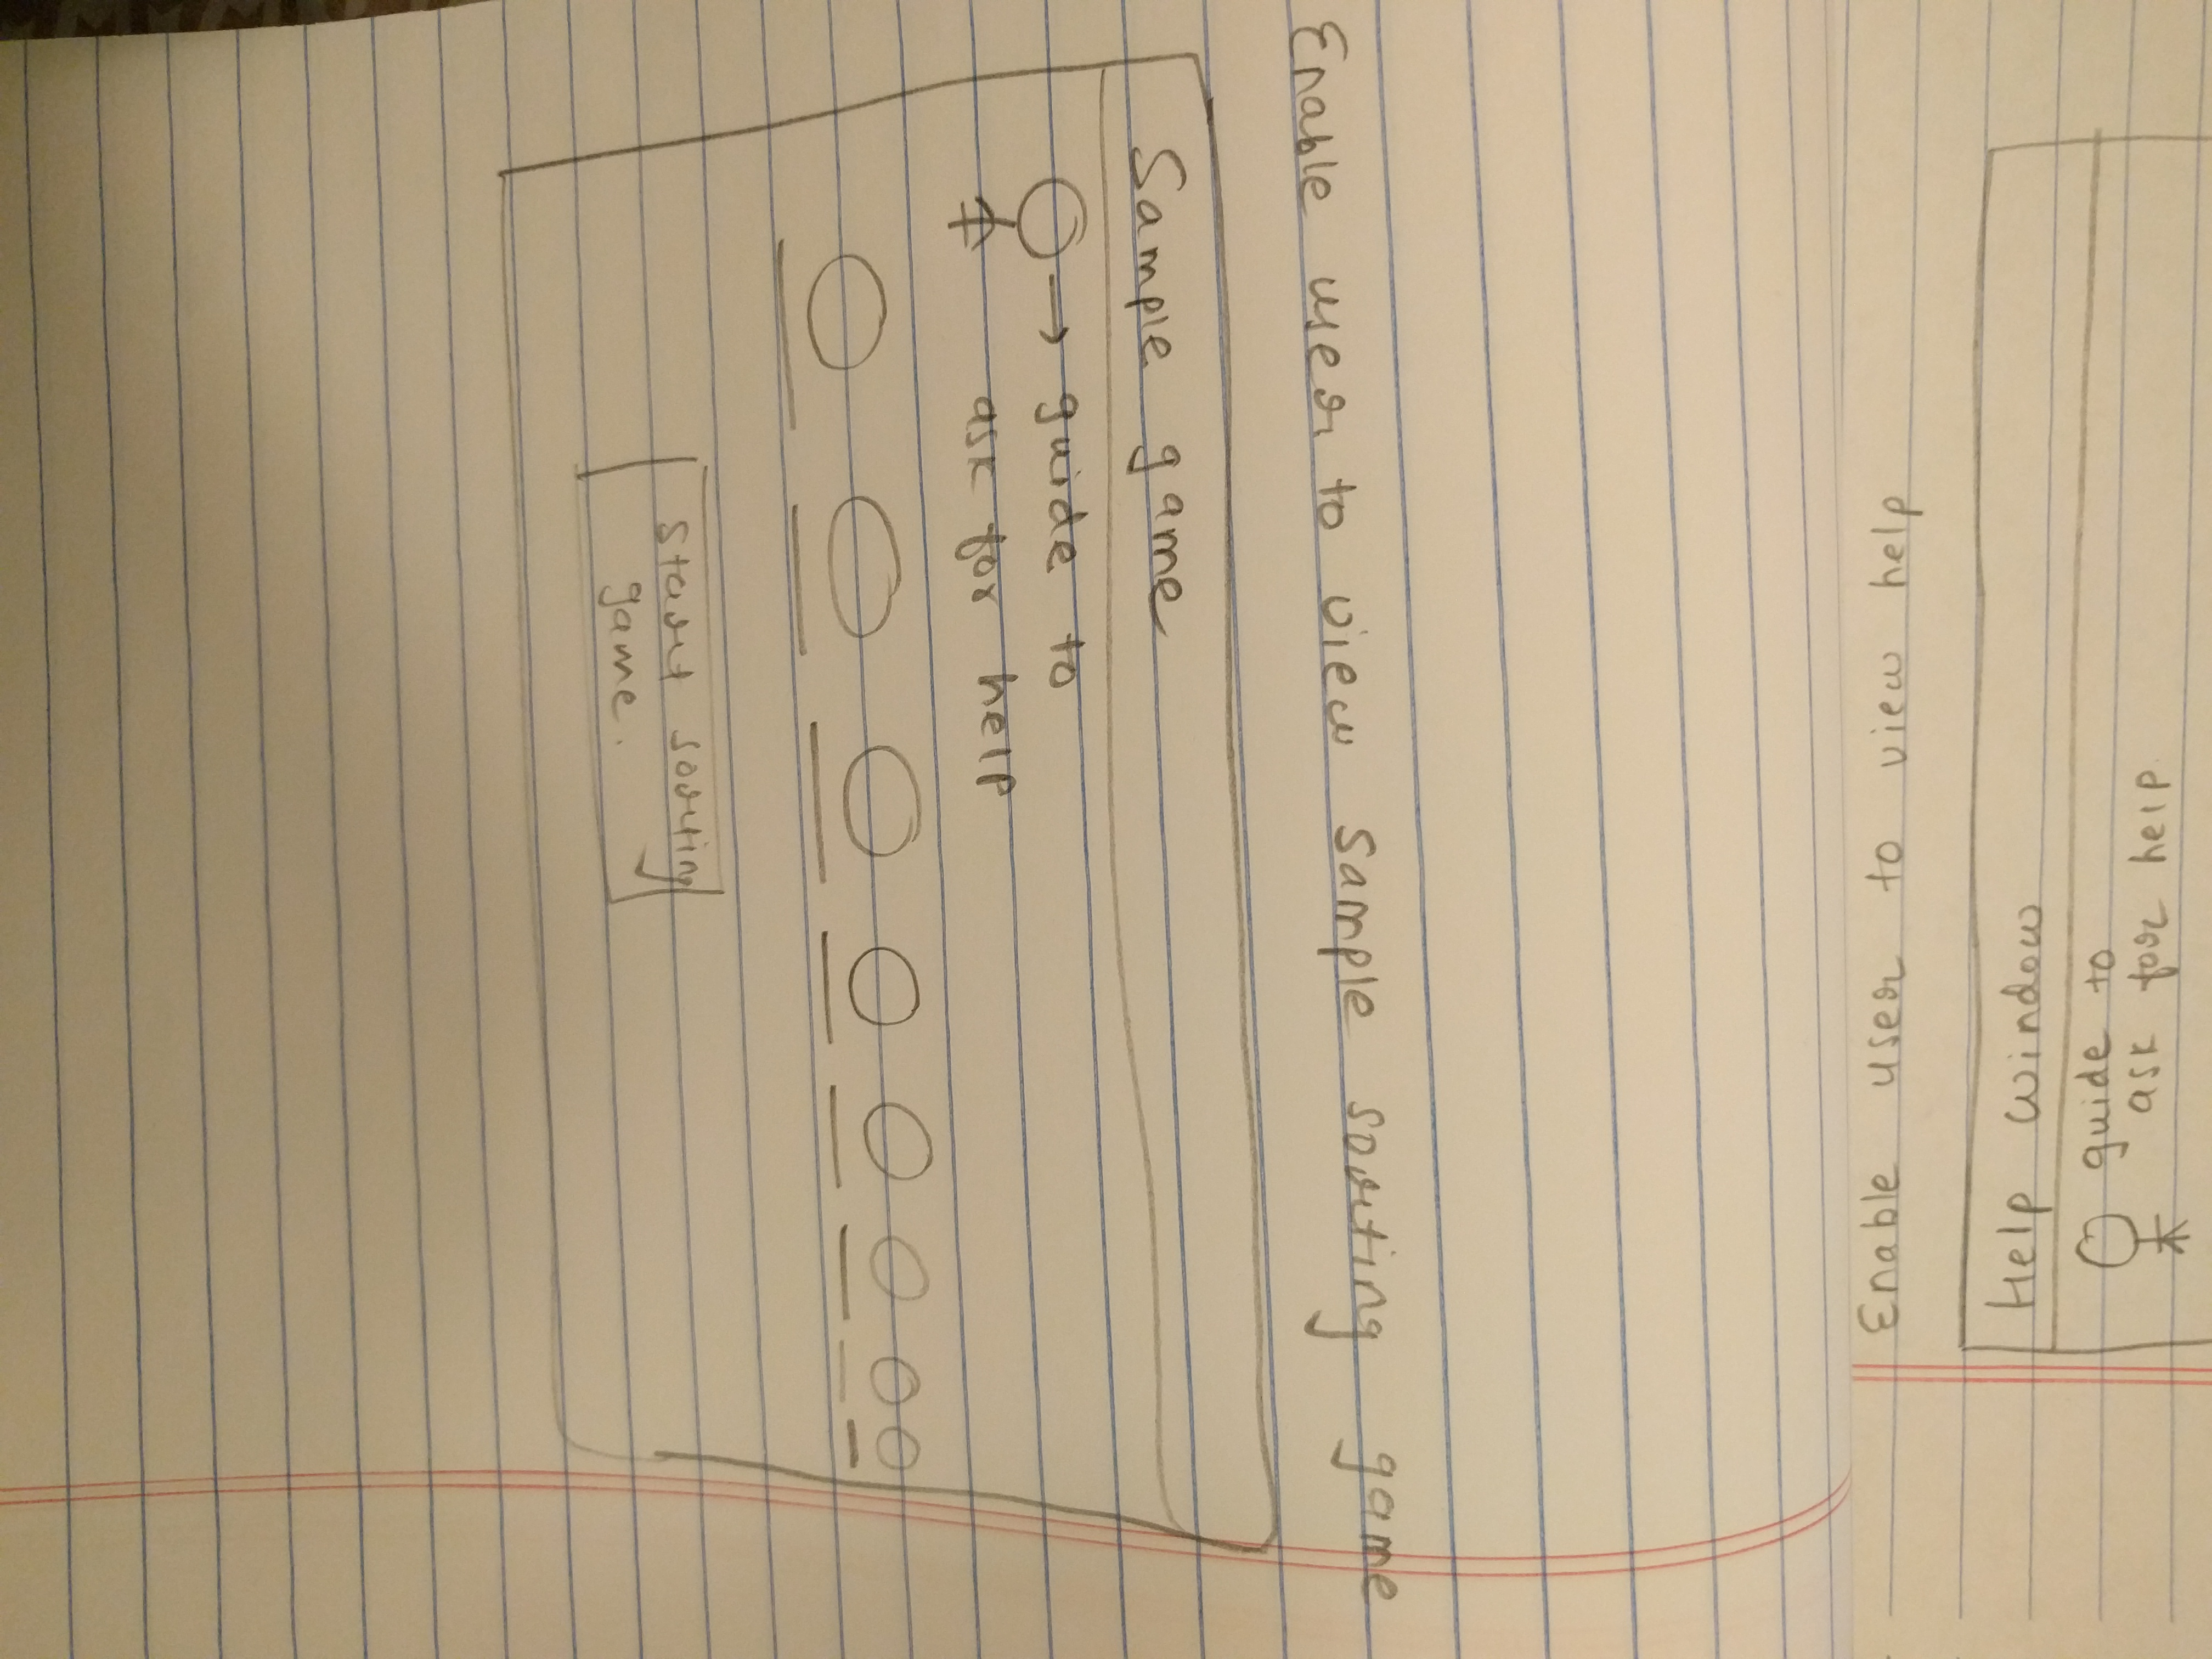 Enable user to view sample sorting game
Sample game
→ guide to
ask for help
Start sorting
game.
Enable user to view help
Help window
guide to
ask for help